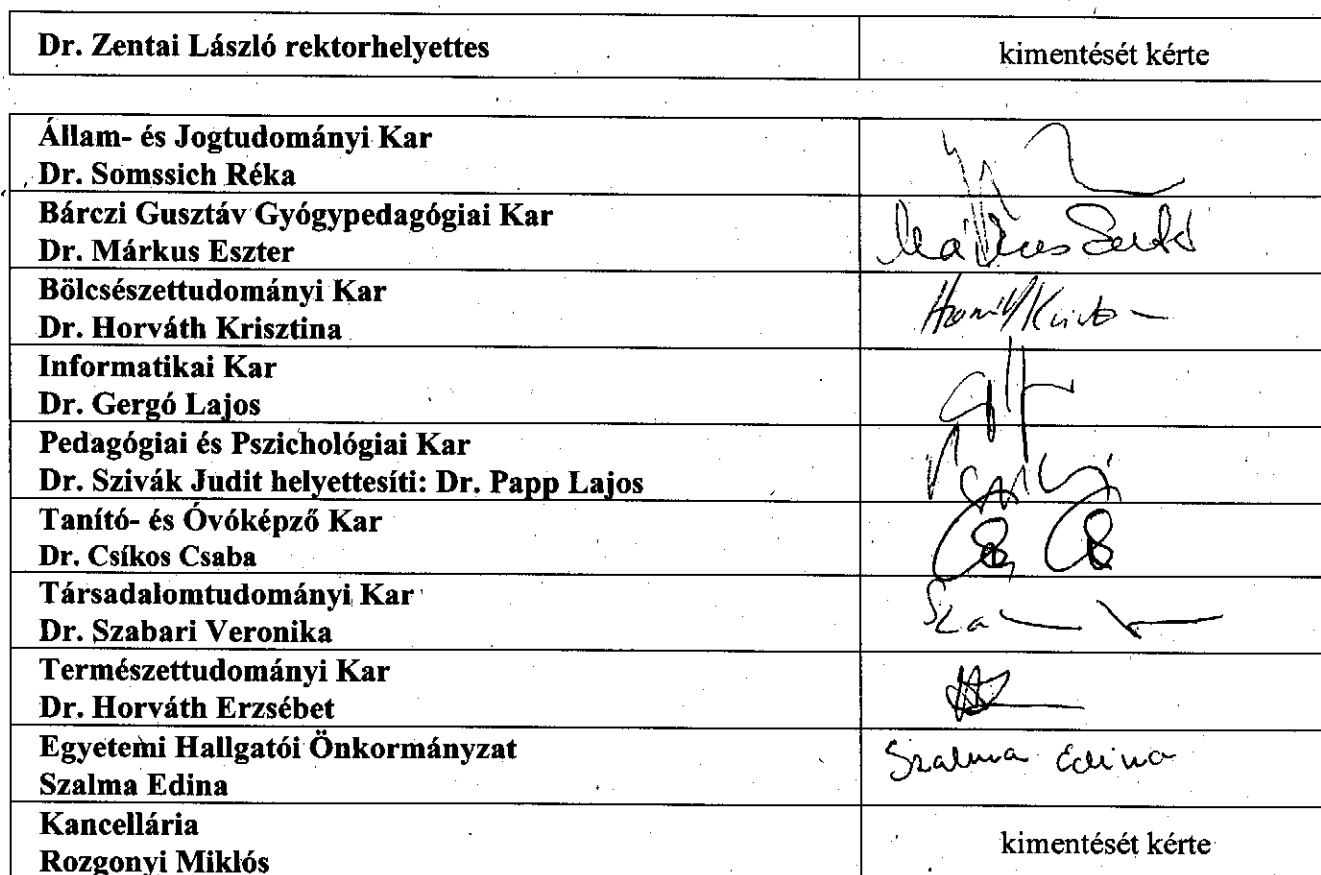 Dr. Zentai László rektorhelyettes kimentését kérte
Állam- és Jogtudományi Kar
Dr. Somssich Réka
Bárczi Gusztáv Gyógypedagógiai Kar
Dr. Márkus Eszter
Bölcsészettudományi Kar
Dr. Horváth Krisztina
Informatikai Kar
Dr. Gergó Lajos
Pedagógiai és Pszichológiai Kar
Dr. Szivák Judit helyettesíti: Dr. Papp Lajos
Tanító- és Óvóképző Kar
Dr. Csíkos Csaba
Társadalomtudományi Kar
Dr. Szabari Veronika
Természettudományi Kar
Dr. Horváth Erzsébet
Egyetemi Hallgatói Önkormányzat
Szalma Edina
Szalma Edina
Kancellária
Rozgonyi Miklós
kimentését kérte